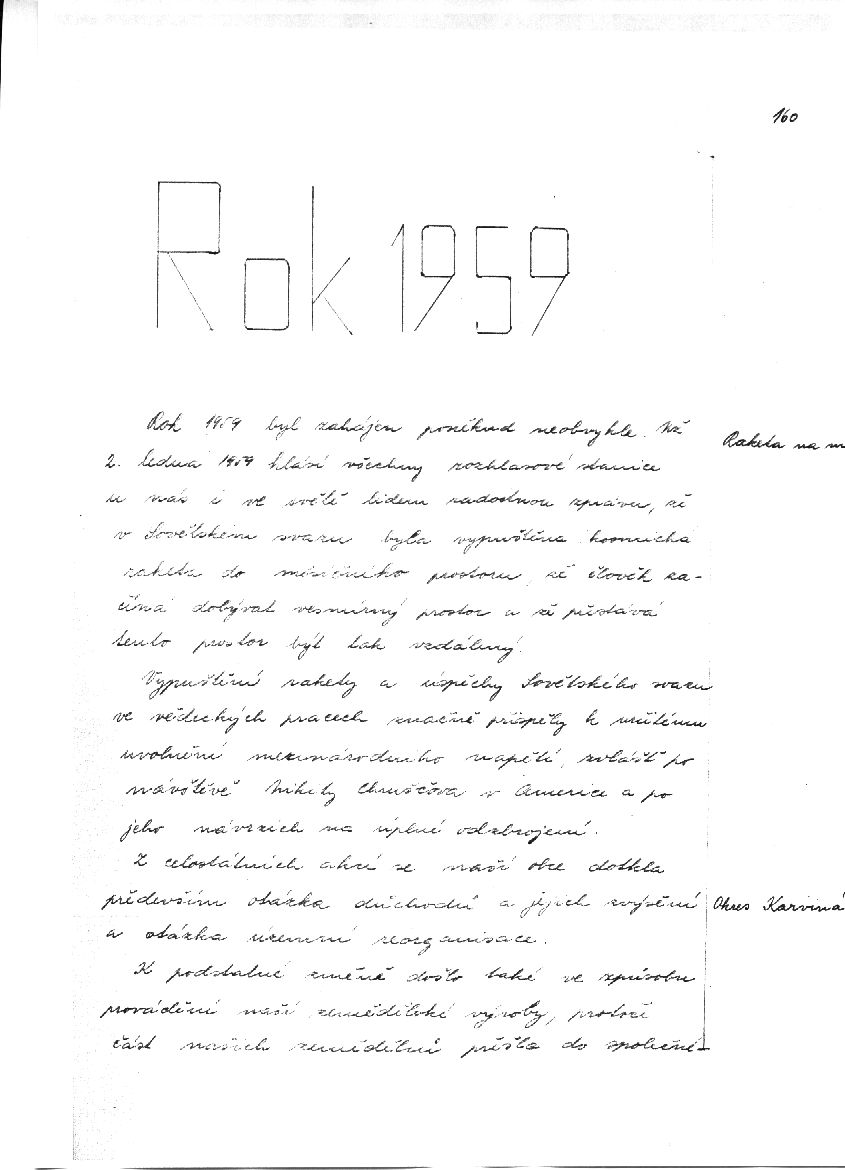 160
Rok 1959
Rok 1959 byl zahájen poněkud neobvykle. Již
Raketa na m
2. ledna 1959 hlásí všechny rozhlasové stanice
u nás i ve světě lidem radostnou zprávu, že
v Sovětském svazu byla vypuštěna kosmická
raketa do měsíčního prostoru, že člověk za-
číná dobývat vesmírný prostor a že přestává
tento prostor být tak vzdálený.
Vypuštění rakety a úspěchy Sovětského svazu
ve vědeckých pracech značně přispěly k určitému
uvolnění mezinárodního napětí, zvlášť po
návštěvě Nikity Chruščova v Americe a po
jeho návrzích na úplné odzbrojení.
Z celostátních akcí se naší obce dotkla
především otázka důchodů a jejich zvýšení
Okres Karviná
a otázka územní reorganisace.
K podstatné změně došlo také ve způsobu
provádění naší zemědělské výroby, protože
část našich zemědělců přešla do společné-